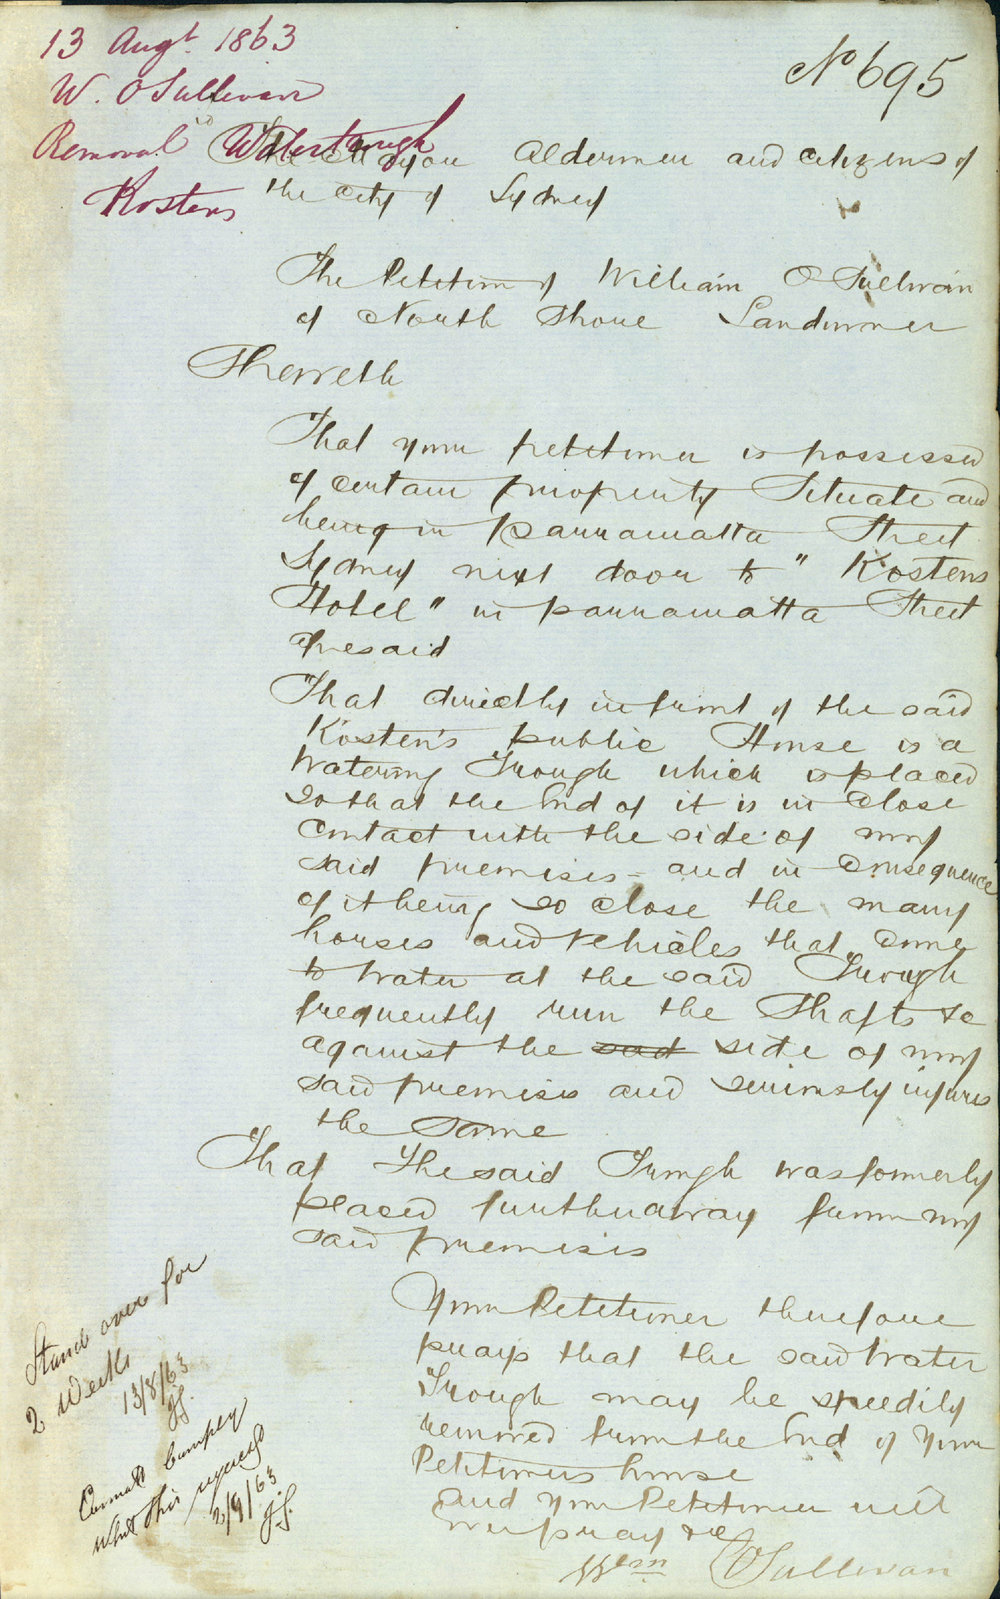 13 Augt. 1863
W. O'Sullivan
Removal Watertrough
Kostens
No 695
To the Mayor Aldermen and citizens of
the City of Sydney
The Petition of William O'Sullivan
of North Shore Landowner
Sheweth
That your petitioner is possessed
of certain property Situate and
being in parramatta Street
Sydney next door to "Kostens
Hotel" in parramatta Street
aforesaid
That directly in front of the said
Kosten's public House is a
Watering Trough which is placed
so that the End of it is in close
contact with the side of my
said premises - and in consequence
of it being so close the many
horses and vehicles that come
to water at the said Trough
frequently run the Shafts &c
against the said side of my
said premises and seriously injures
the same
That The said Trough was formerly
placed further away from my
said premises
Your Petitioner therefore
prays that the said Water
Trough may be speedily
removed from the End of Your
Petitioners house
And Your Petitioner will
ever pray &c
Wm O'Sullivan
Stand over for
2 Weeks
13/8/63
JS.
Cannot comply
with this request
2/9/63
J.S.